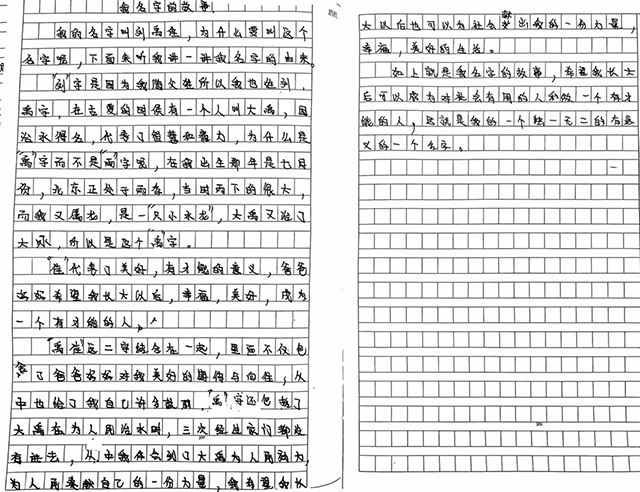 我名字的故事
我的名字叫刘禹佳，为什么要叫这个
名字呢，下面来听我讲一讲我名字的由来。
"刘"字是因为我随父姓所以我也姓刘，
禹字，在古夏的时候有一个人叫大禹，因
治水得名，代表了智慧和毅力，为什么是
"禹"字而不是"雨"字呢，在我出生那年是七月
份，北京正处于雨季，当时雨下的很大，
而我又属龙，是一"只小水龙"，大禹又治了
大水，所以是这个"禹"字。
"佳"代表了美好，有才能的意义，爸爸
妈妈希望我长大以后，幸福，美好，成为
一个有才能的人。
"禹佳"这二字结合在一起，里面不仅包
含了爸爸妈妈对我美好的期待与向往，从
中也给了我自己许多鼓励，"禹"字还包含了
大禹在为人民治水时，三次经过家门都没
有进去，从中我体会到了大禹为人民的为，
为人民奉献自己的一份力量，我希望我长
大以后也可以为社会献出我的一份力量，
幸福，美好的生活。
如上就是我名字的故事，希望我长大
后可以成为对社会有用的人和做一个有才
能的人，这就是我的一个独一无二的有意
义的一个名字。